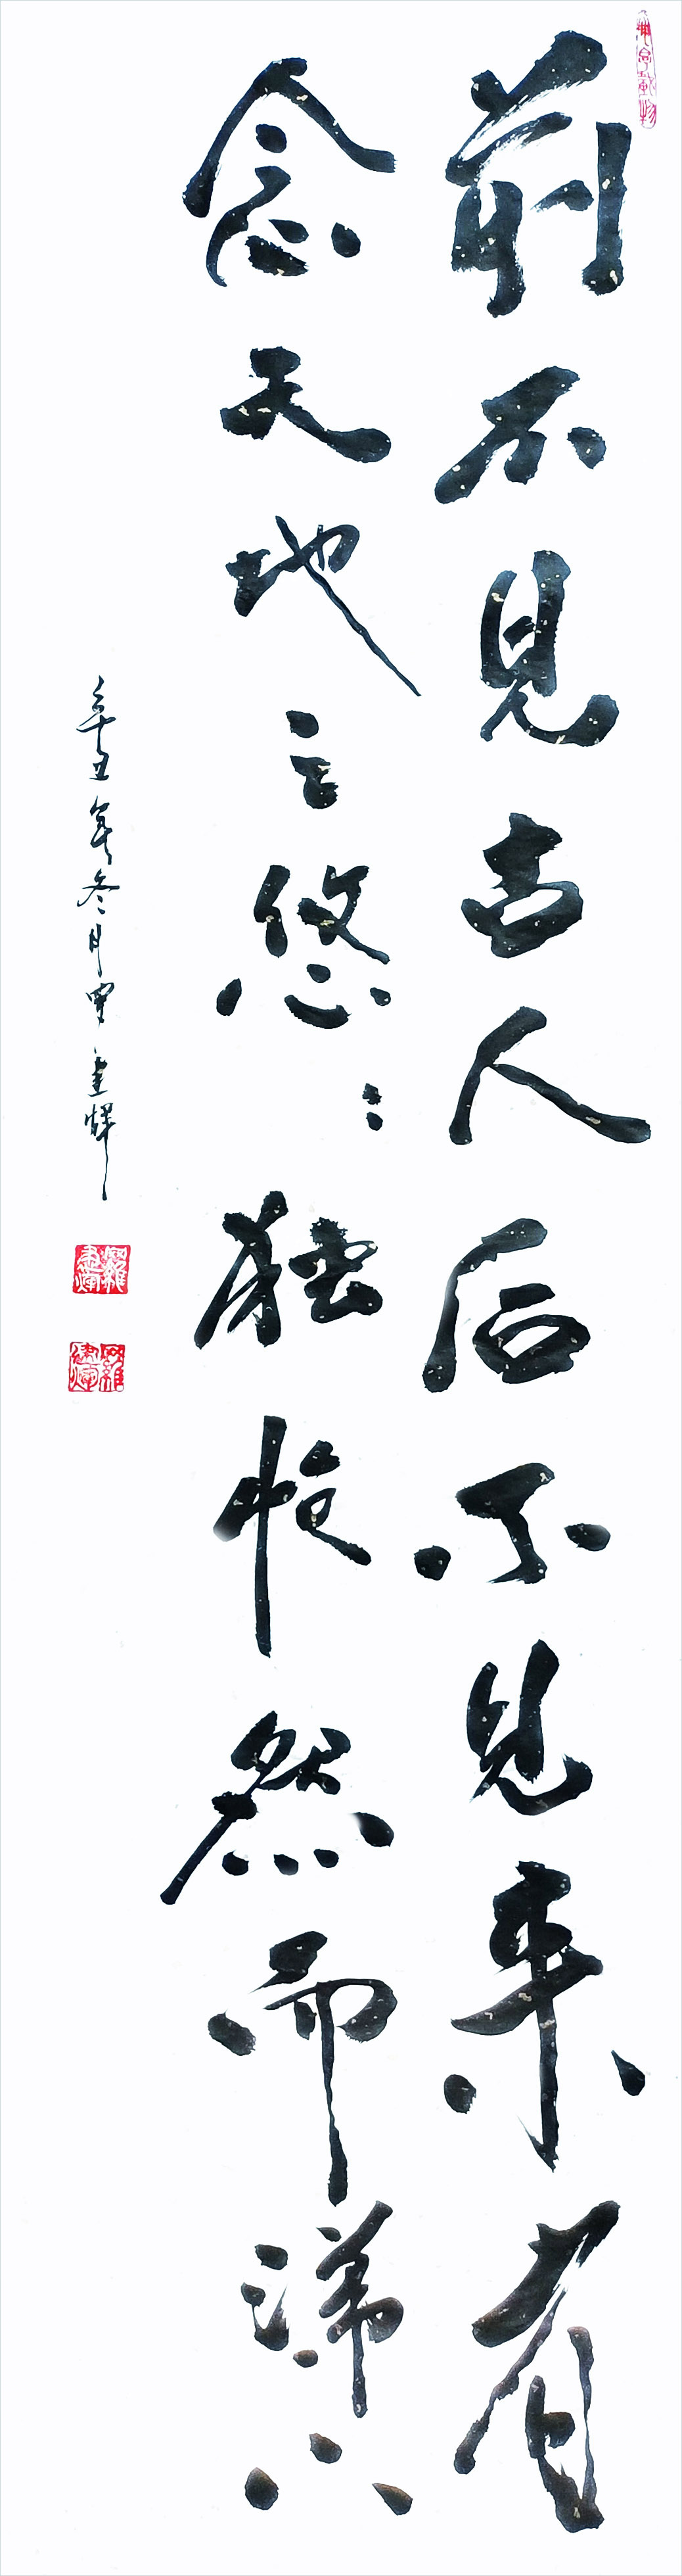 前不見古人后不見来者
念天地之悠悠独怆然而涕下
辛丑年冬月罗建輝